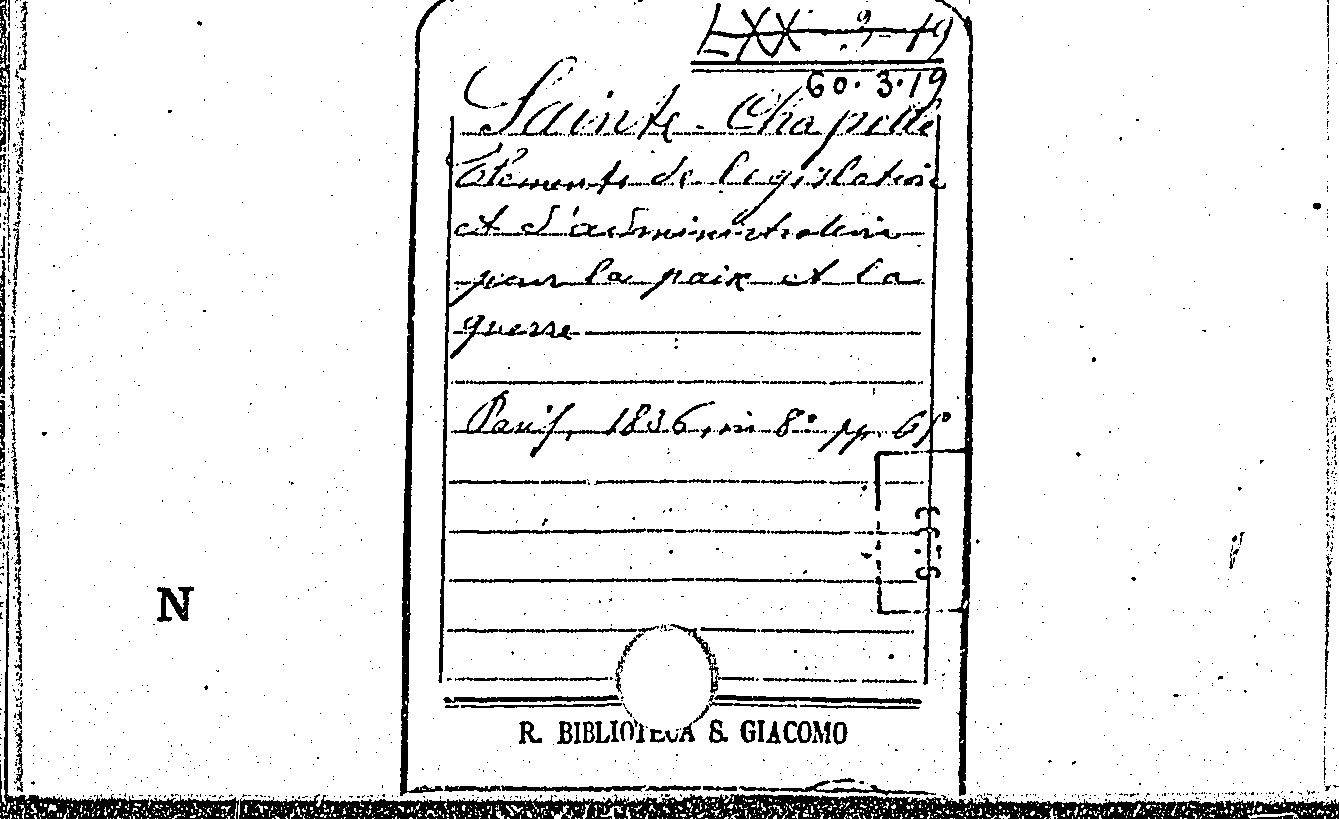 LXX-9-19
60.3.19
Sainte-Chapelle
Elements de legislation
et d'administration
pour la paix et la
guerre
Paris, 1836, in 8° pp.
N
R. BIBLIOTECA S. GIACOMO